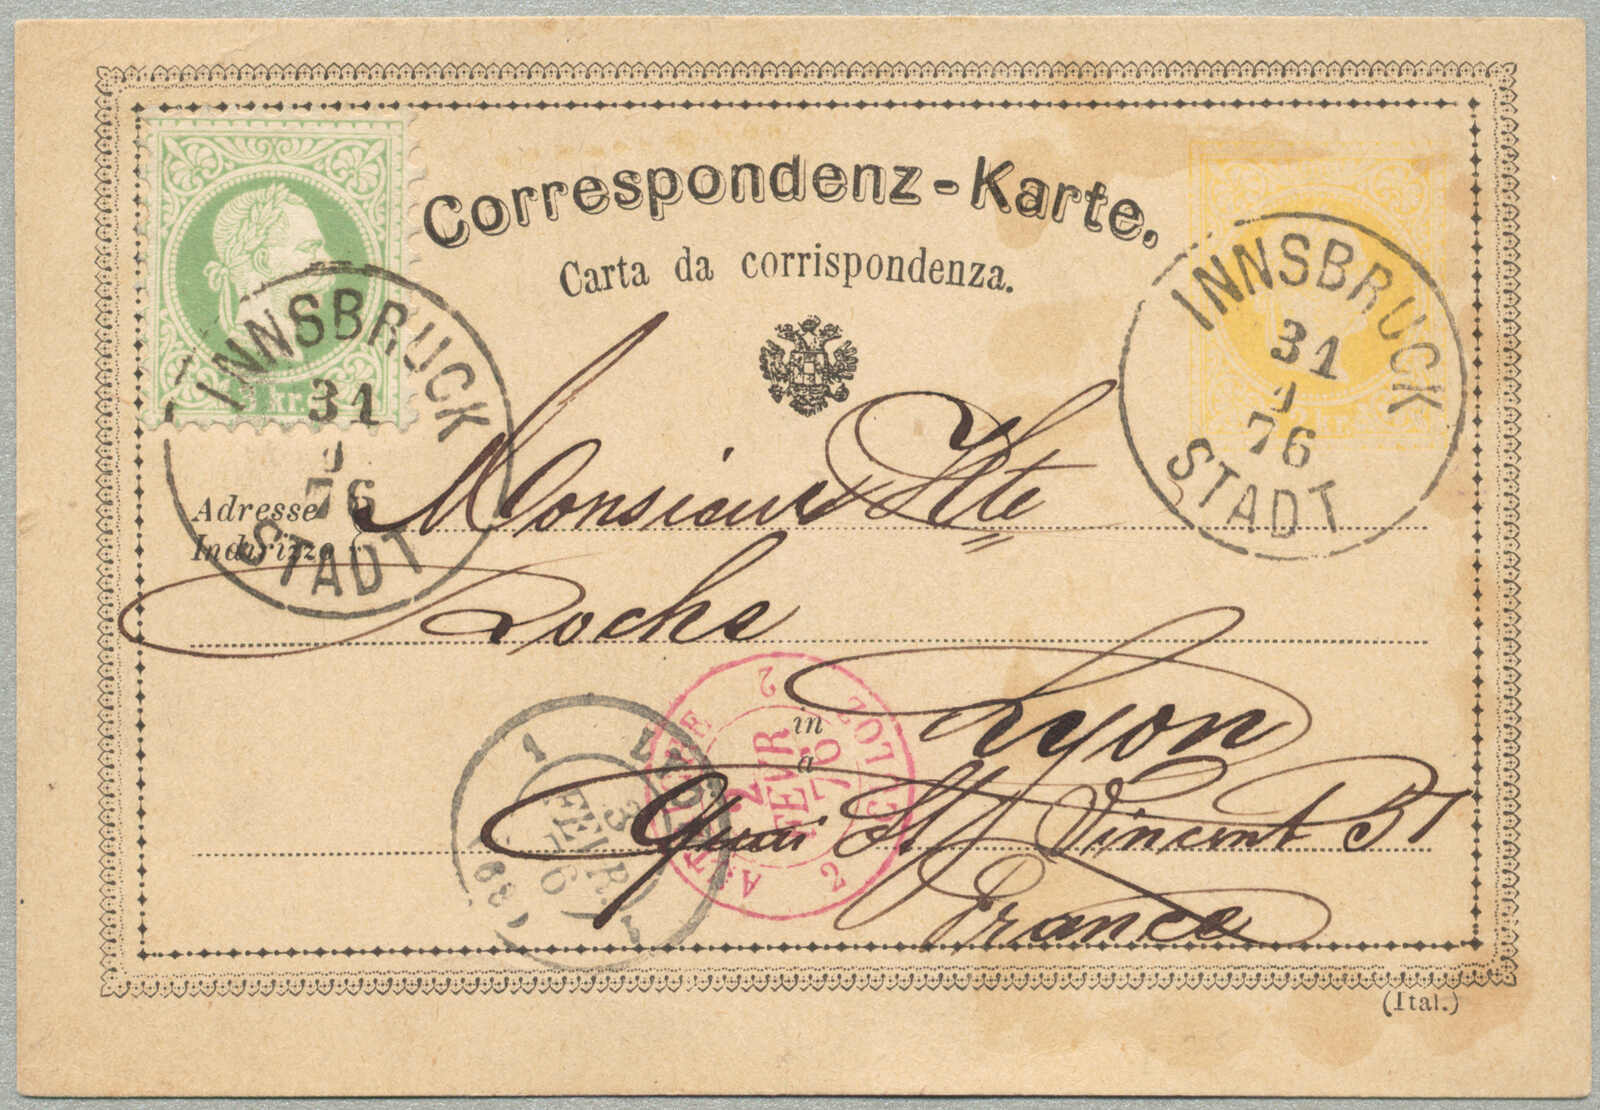 Correspondenz-Karte.
Carta da corrispondenza.
kr.
INNSBRUCK
31
76
STADT
INNSBRUCK
31
76
STADT
kr.
Adresse
Indirizzo
Monsieur Hte
Roche
in
a
Lyon
Quai St Vincent 37
France
2
2 FEVR 76
2
1
FEVR. 76
(Ital.)